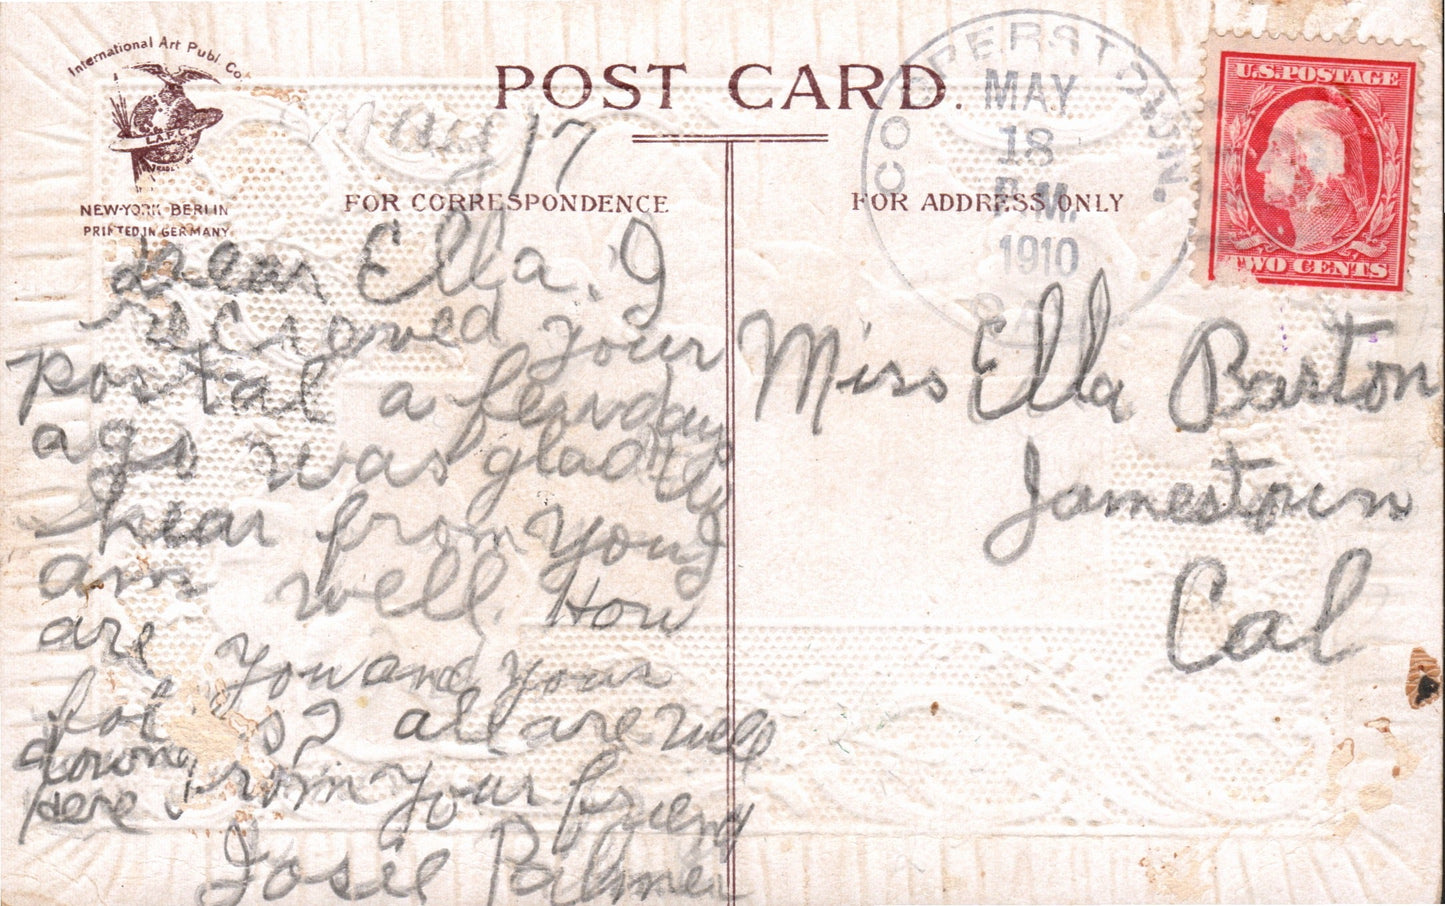 International Art Publ. Co.
I.A.P.C.
NEW-YORK BERLIN
PRINTED IN GERMANY
POST CARD.
FOR CORRESPONDENCE
FOR ADDRESS ONLY
COOPERSTOWN.
MAY
18
P.M.
1910
CAL
U.S. POSTAGE
TWO CENTS
May 17
Dear Ella. I
recieved your
postal a few day
ago was glad to
hear from you I
am well. How
are you and your
folks? all are well
down
here. From your friend
Josie Palmer
Miss Ella Barton
Jamestown
Cal